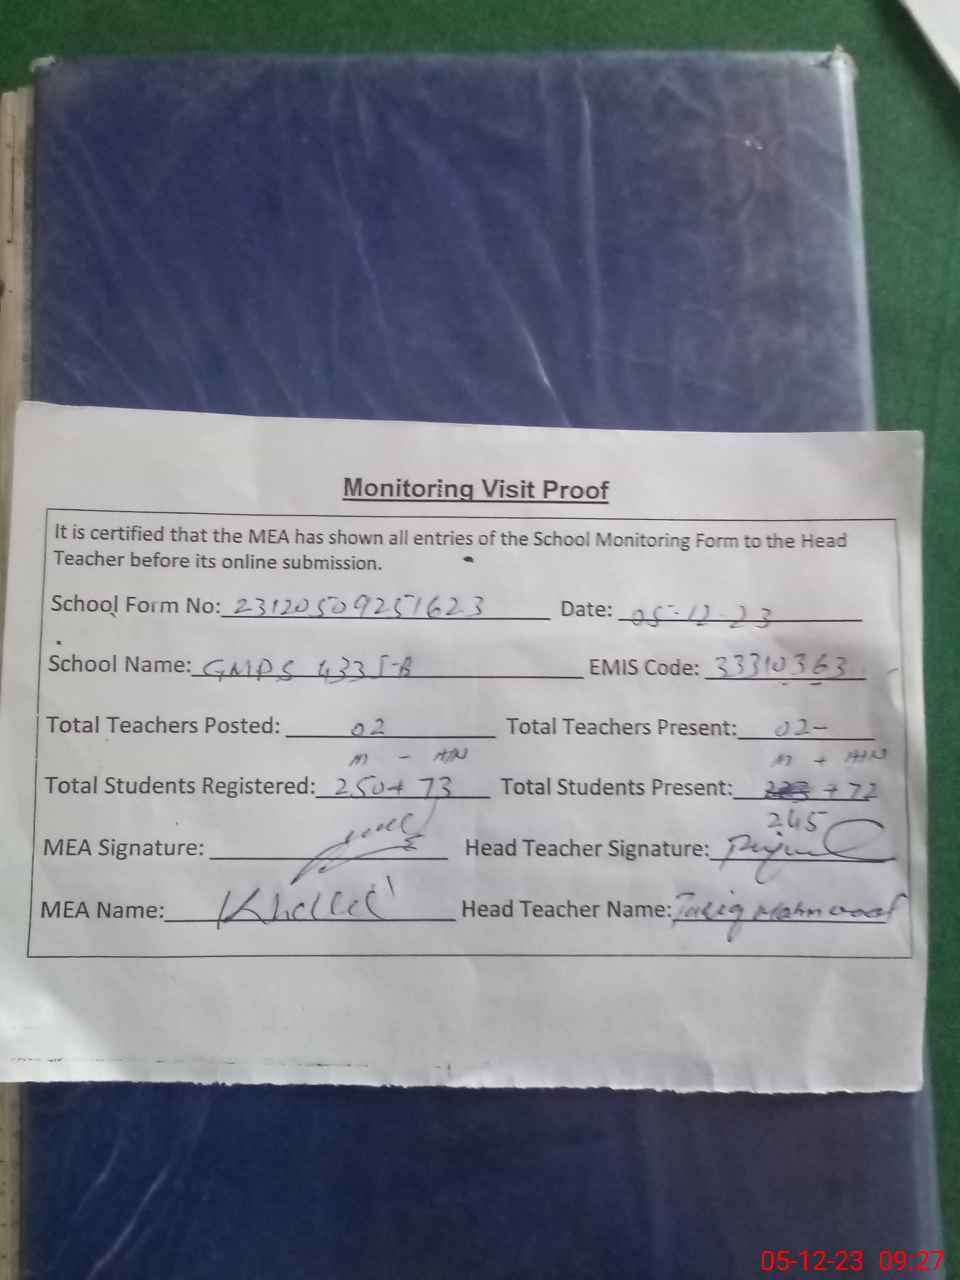 Monitoring Visit Proof
It is certified that the MEA has shown all entries of the School Monitoring Form to the Head
Teacher before its online submission.
School Form No: 23120509251623 Date: 05-12-23
School Name: GMPS 433 J-B EMIS Code: 33310363
Total Teachers Posted: 02 Total Teachers Present: 02-
M - M +
Total Students Registered: 250+ 73 Total Students Present: + 72
245
MEA Signature: Head Teacher Signature:
MEA Name: Head Teacher Name: Tariq Mahmood
05-12-23 09:27